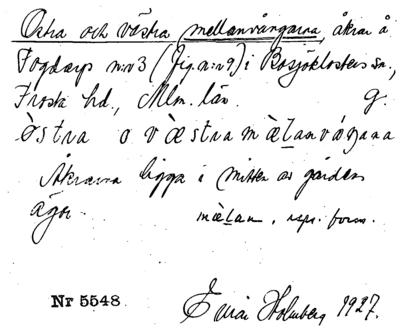 Östra och västra mellanvångarna, åkrar å
Fogdarp n:r 3 (fig. n:r 9) i Bosjöklosters sn.,
Frosta hd., Mlm. län. G.
östra o væstra mælanvångana
Åkrarna ligga i mitten av gårdens
ägor. mælan, rspr. form.
Nr 5548 Einar Holmberg 1927.